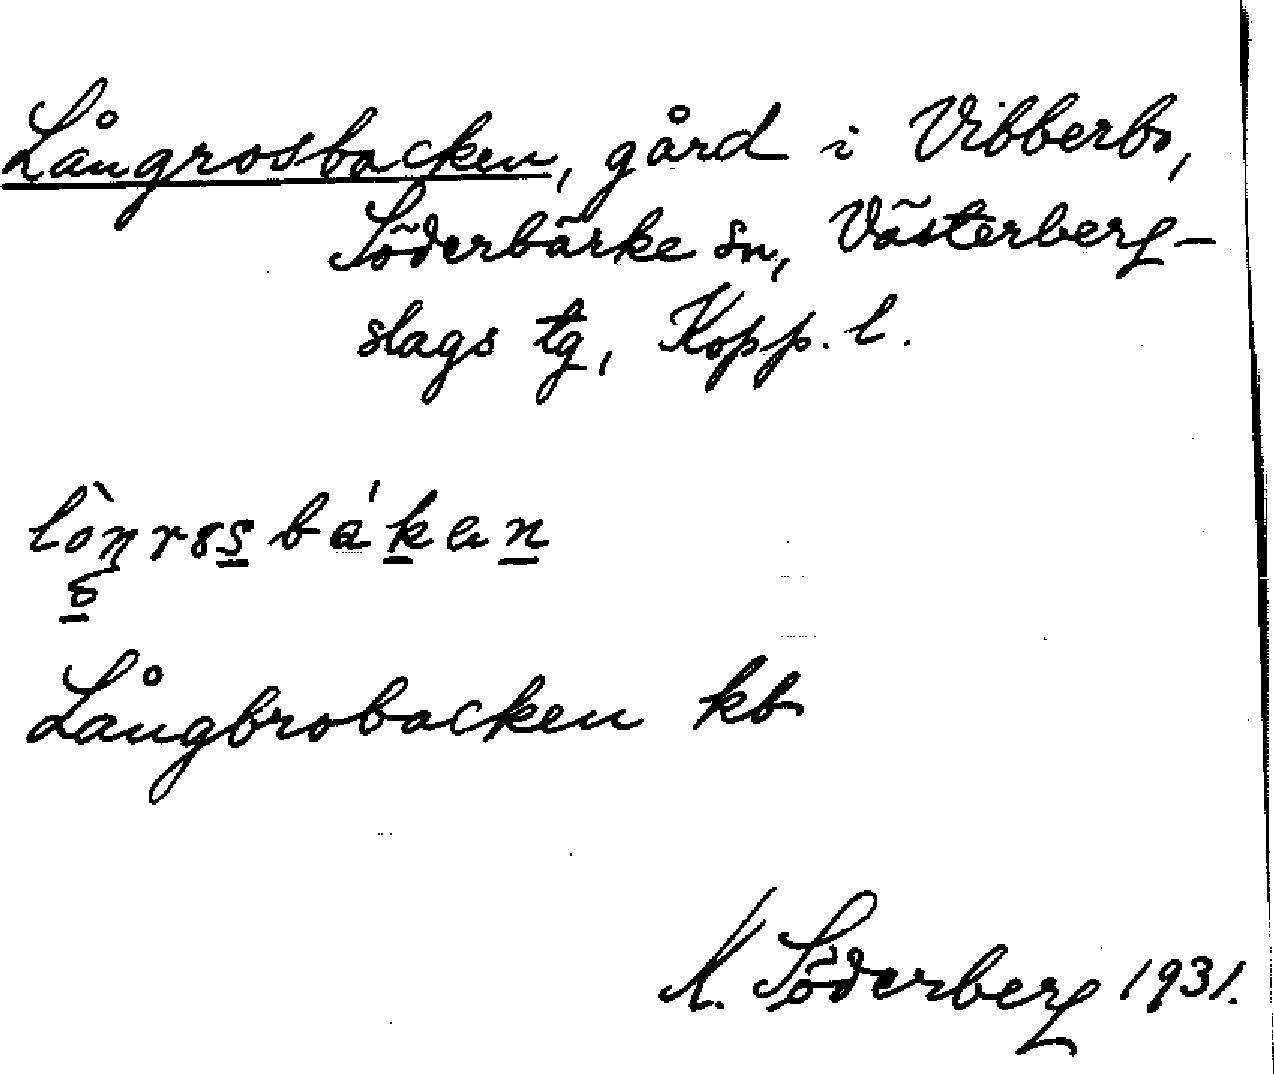 Långrosbacken, gård i Vibberbo,
Söderbärke sn, Västerberg-
slags tg, Kopp. l.
Långbrobacken kb
M. Söderberg 1931.